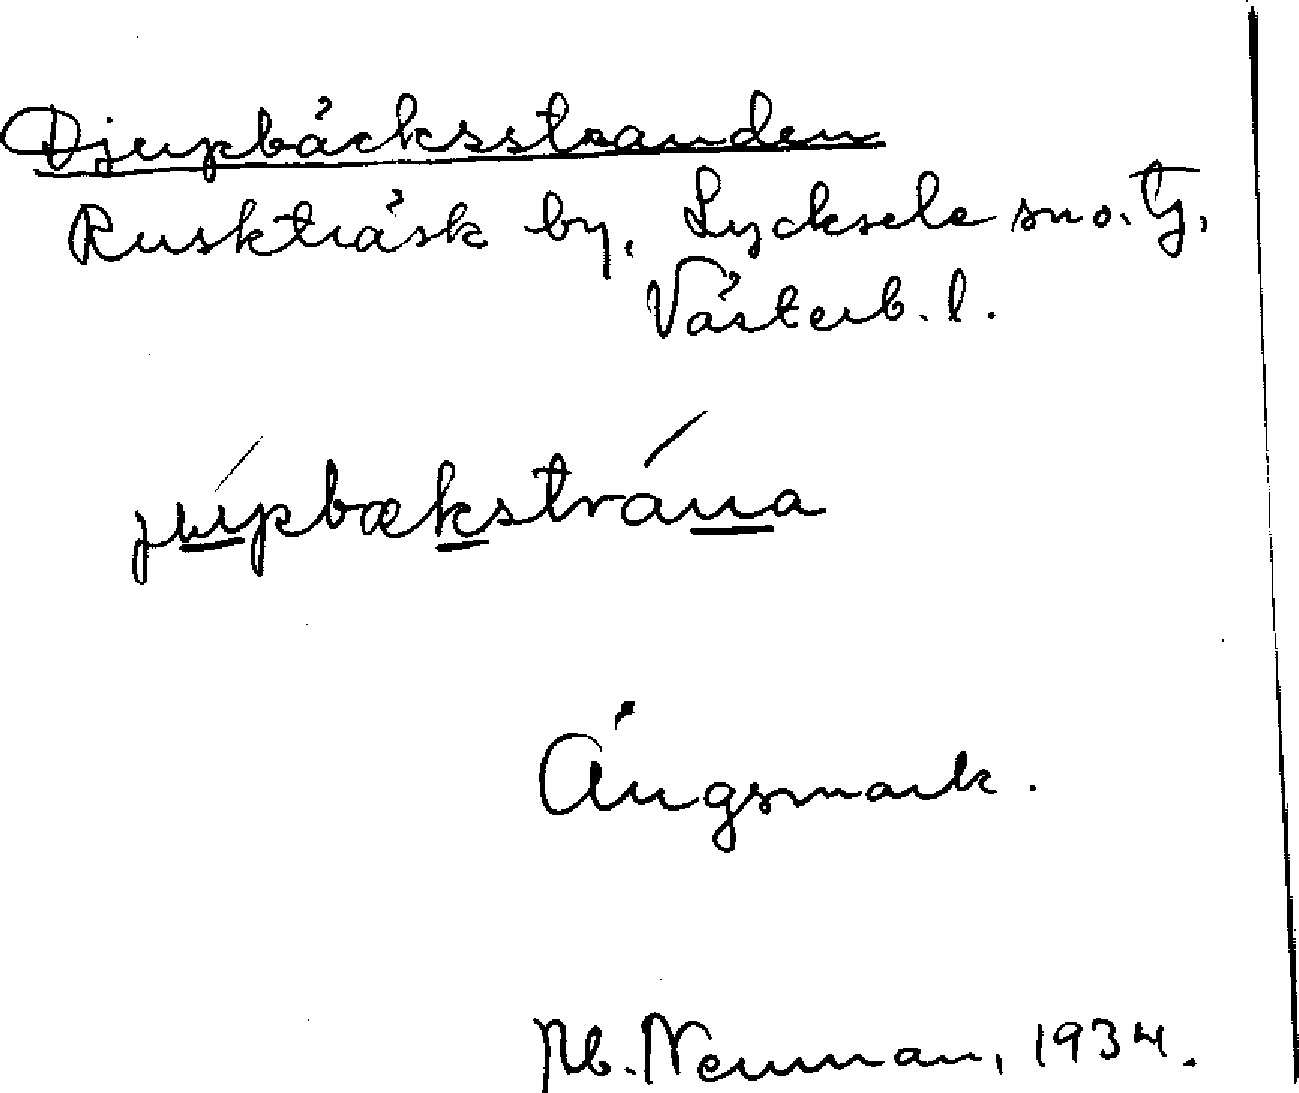 Djupbäcksstranden
Ruskträsk by, Lycksele sn o. Tg,
Västerb. l.
júpbækstrána
Ängsmark.
Rb. Neuman, 1934.